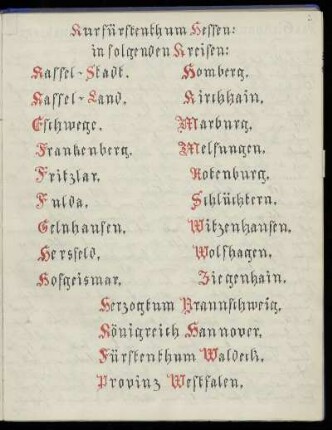 Kurfürstenthum Hessen:
in folgenden Kreisen:
Kassel-Stadt.
Kassel-Land.
Eschwege.
Frankenberg.
Fritzlar.
Fulda.
Gelnhausen.
Hersfeld.
Hofgeismar.
Homberg.
Kirchhain.
Marburg.
Melsungen.
Rotenburg.
Schlüchtern.
Witzenhausen.
Wolfhagen.
Ziegenhain.
Herzogtum Braunschweig.
Königreich Hannover.
Fürstenthum Waldeck.
Provinz Westfalen.